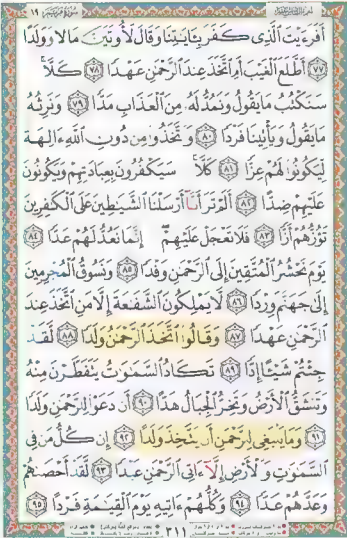 أَفَرَءَيْتَ ٱلَّذِى كَفَرَ بِـَٔايَـٰتِنَا وَقَالَ لَأُوتَيَنَّ مَالًا وَوَلَدًا
﴿٧٧﴾ أَطَّلَعَ ٱلْغَيْبَ أَمِ ٱتَّخَذَ عِندَ ٱلرَّحْمَـٰنِ عَهْدًا ﴿٧٨﴾ كَلَّا
سَنَكْتُبُ مَا يَقُولُ وَنَمُدُّ لَهُۥ مِنَ ٱلْعَذَابِ مَدًّا ﴿٧٩﴾ وَنَرِثُهُۥ
مَا يَقُولُ وَيَأْتِينَا فَرْدًا ﴿٨٠﴾ وَٱتَّخَذُوا۟ مِن دُونِ ٱللَّهِ ءَالِهَةً
لِّيَكُونُوا۟ لَهُمْ عِزًّا ﴿٨١﴾ كَلَّا سَيَكْفُرُونَ بِعِبَادَتِهِمْ وَيَكُونُونَ
عَلَيْهِمْ ضِدًّا ﴿٨٢﴾ أَلَمْ تَرَ أَنَّآ أَرْسَلْنَا ٱلشَّيَـٰطِينَ عَلَى ٱلْكَـٰفِرِينَ
تَؤُزُّهُمْ أَزًّا ﴿٨٣﴾ فَلَا تَعْجَلْ عَلَيْهِمْ إِنَّمَا نَعُدُّ لَهُمْ عَدًّا ﴿٨٤﴾
يَوْمَ نَحْشُرُ ٱلْمُتَّقِينَ إِلَى ٱلرَّحْمَـٰنِ وَفْدًا ﴿٨٥﴾ وَنَسُوقُ ٱلْمُجْرِمِينَ
إِلَىٰ جَهَنَّمَ وِرْدًا ﴿٨٦﴾ لَّا يَمْلِكُونَ ٱلشَّفَـٰعَةَ إِلَّا مَنِ ٱتَّخَذَ عِندَ
ٱلرَّحْمَـٰنِ عَهْدًا ﴿٨٧﴾ وَقَالُوا۟ ٱتَّخَذَ ٱلرَّحْمَـٰنُ وَلَدًا ﴿٨٨﴾ لَّقَدْ
جِئْتُمْ شَيْـًٔا إِدًّا ﴿٨٩﴾ تَكَادُ ٱلسَّمَـٰوَٰتُ يَتَفَطَّرْنَ مِنْهُ
وَتَنشَقُّ ٱلْأَرْضُ وَتَخِرُّ ٱلْجِبَالُ هَدًّا ﴿٩٠﴾ أَن دَعَوْا۟ لِلرَّحْمَـٰنِ وَلَدًا
﴿٩١﴾ وَمَا يَنۢبَغِى لِلرَّحْمَـٰنِ أَن يَتَّخِذَ وَلَدًا ﴿٩٢﴾ إِن كُلُّ مَن فِى
ٱلسَّمَـٰوَٰتِ وَٱلْأَرْضِ إِلَّآ ءَاتِى ٱلرَّحْمَـٰنِ عَبْدًا ﴿٩٣﴾ لَّقَدْ أَحْصَىٰهُمْ
وَعَدَّهُمْ عَدًّا ﴿٩٤﴾ وَكُلُّهُمْ ءَاتِيهِ يَوْمَ ٱلْقِيَـٰمَةِ فَرْدًا ﴿٩٥﴾
٣١١